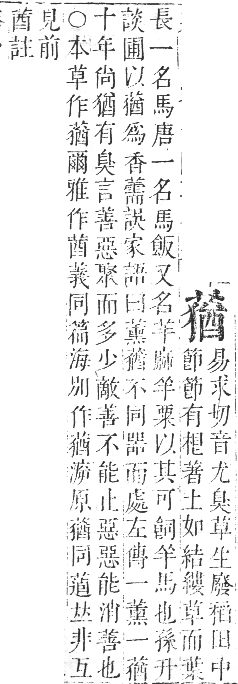 蕕
易求切音尤臭草生廢稻田中
節節有根著土如結縷草而葉
長一名馬唐一名馬飯又名羊麻羊粟以其可飼羊馬也孫升
談圃以蕕爲香薷誤家語曰薰蕕不同器而處左傳一薰一蕕
十年尚猶有臭言善惡聚而多少敵善不能止惡惡能消善也
○本草作蕕爾雅作莤義同篇海別作蕕㳺原猶同䔢𠀤非互
見前
莤註